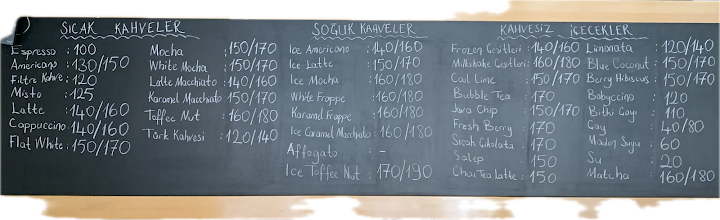 SICAK KAHVELER
Espresso : 100
Americano : 130/150
Filtre Kahve : 120
Misto : 125
Latte : 140/160
Cappuccino : 140/160
Flat White : 150/170
Mocha : 150/170
White Mocha : 150/170
Latte Macchiato : 140/160
Karamel Macchiato : 150/170
Toffee Nut : 160/180
Türk Kahvesi : 120/140
SOĞUK KAHVELER
Ice Americano : 140/160
Ice Latte : 150/170
Ice Mocha : 160/180
White Frappe : 160/180
Karamel Frappe : 160/180
Ice Caramel Macchiato : 160/180
Affogato –
Ice Toffee Nut : 170/190
KAHVESİZ İÇECEKLER
Frozen Çeşitleri : 140/160
Milkshake Çeşitleri : 160/180
Cool Lime : 150/170
Bubble Tea : 170
Java Chip : 150/170
Fresh Berry : 170
Sıcak Çikolata : 170
Salep : 150
Chai Tea Latte : 150
Limonata : 120/140
Blue Coconut : 150/170
Berry Hibiscus : 150/170
Babyccino : 120
Bitki Çayı : 110
Çay : 40/80
Maden Suyu : 60
Su : 20
Matcha : 160/180